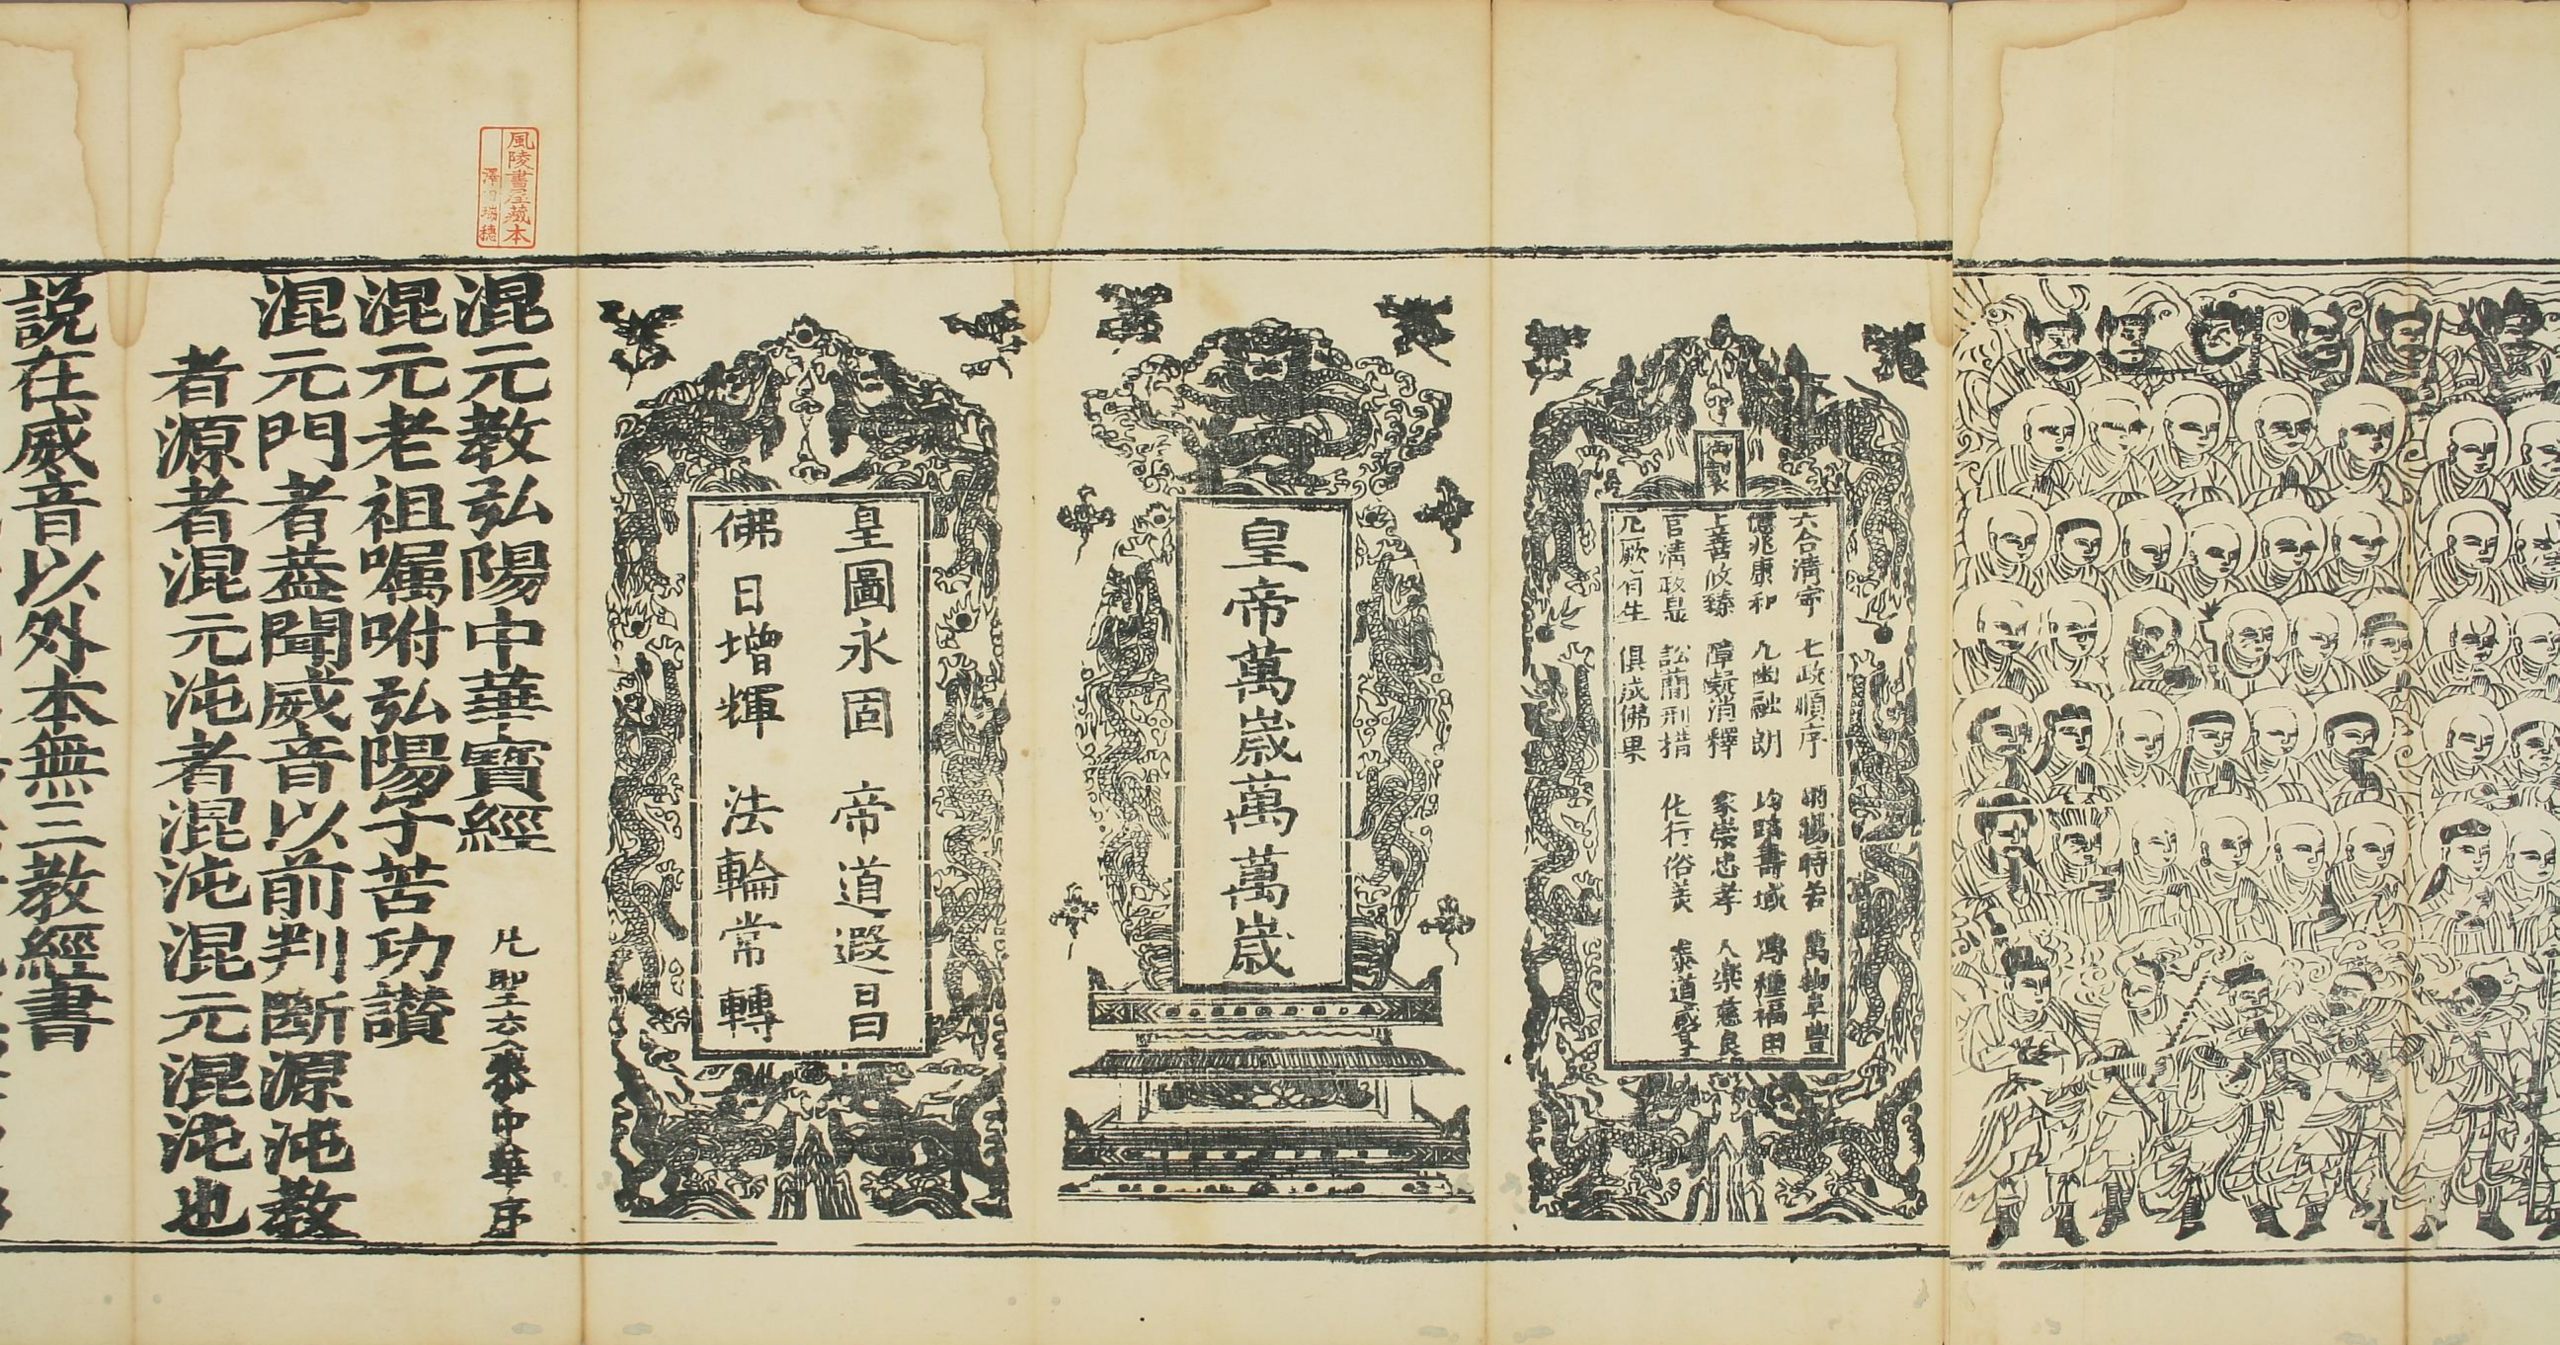 御製
六合清寧 七政順序 雨暘時若 萬物阜豐
億兆康和 九幽融朗 均躋壽域 溥種福田
上善攸臻 障礙消釋 家崇忠孝 人樂慈良
官清政㫷 訟簡刑措 化行俗美 泰道咸亨
凡厥有生 俱成佛果
皇帝萬歲萬萬歲
皇圖永固 帝道遐昌
佛日增輝 法輪常轉
風陵書屋藏本
澤田瑞穗
混元教弘陽中華寶經
凡聖交參中華序
混元老祖囑咐弘陽子苦功讚
混元門者葢聞威音以前判斷源沌教
者源者混元沌者混沌混元混沌也
說在威音以外本無三教經書